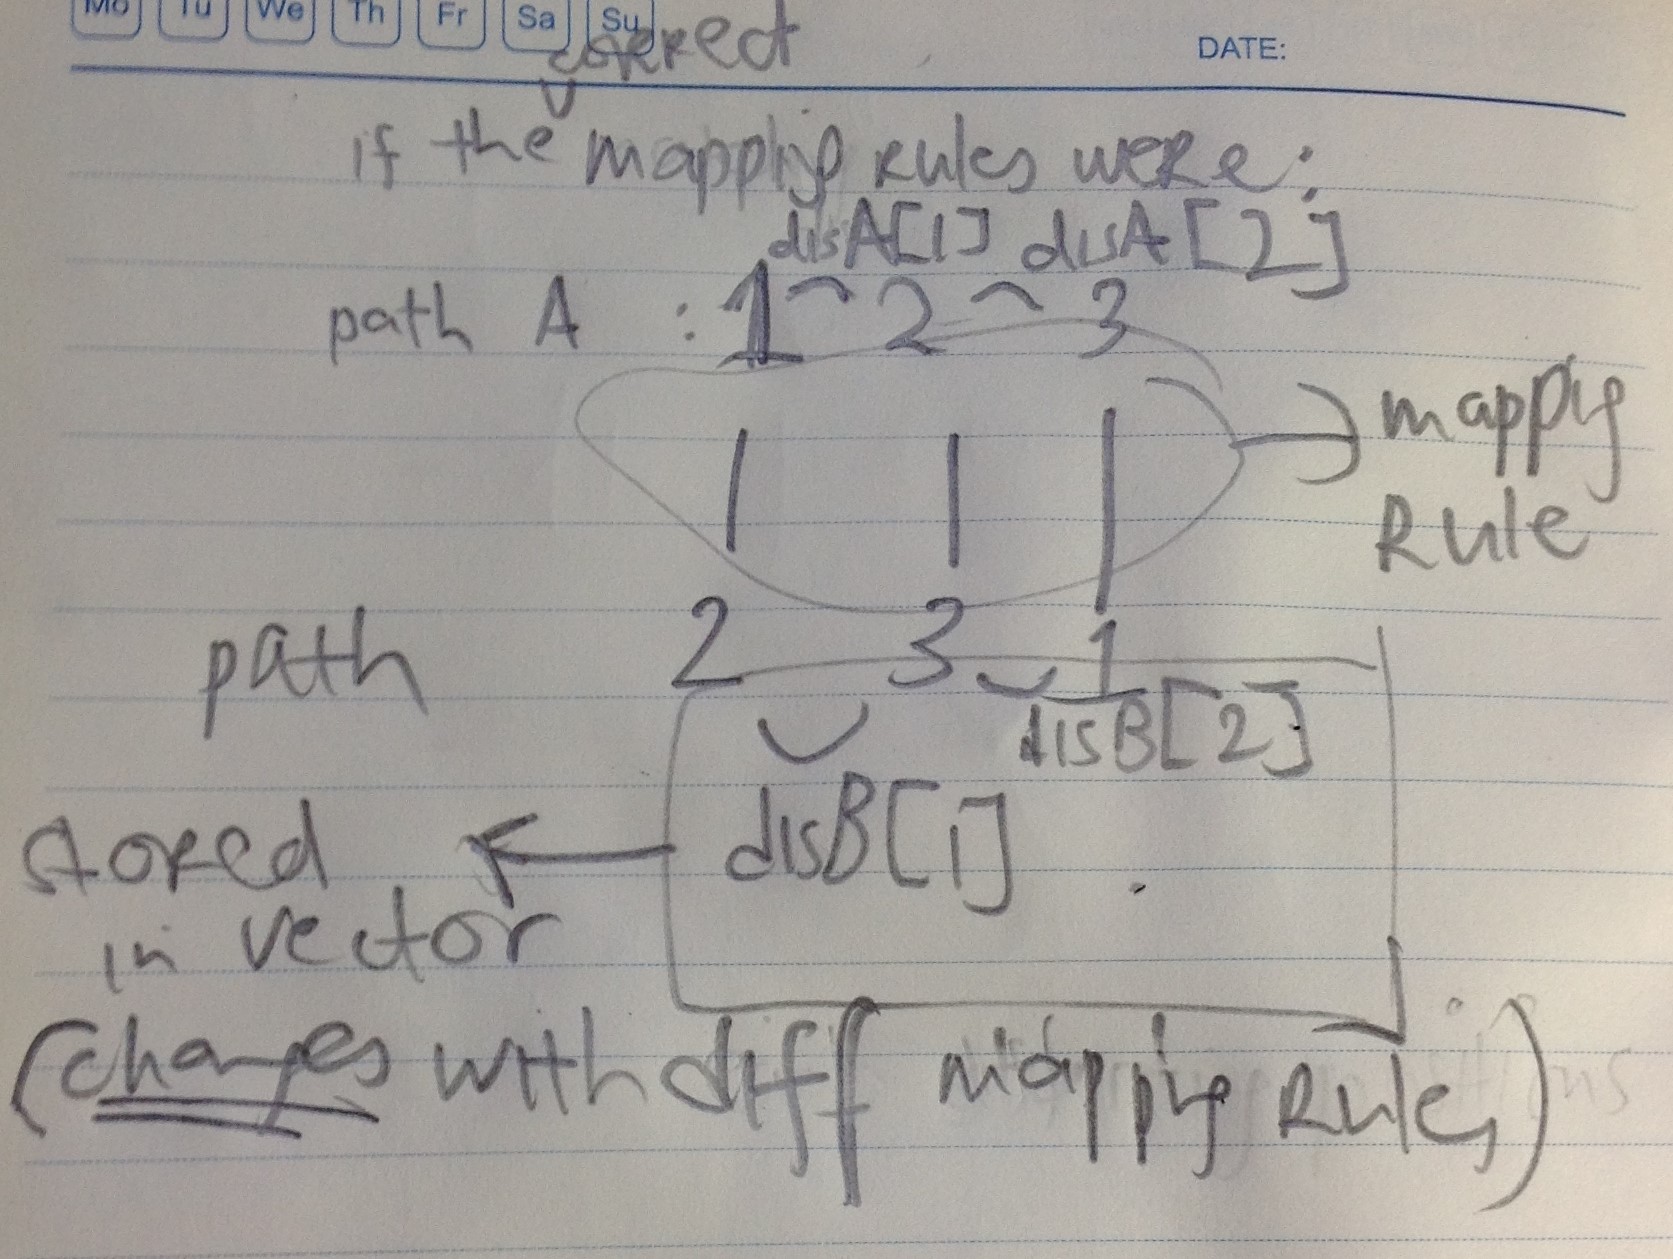 Mo Tu We Th Fr Sa Su
DATE:
correct
if the mapping Rules were:
disA[1] disA[2]
path A : 1 2 3
mapping
Rule
path 2 3 1
disB[2]
disB[1]
stored
in vector
(changes with diff mapping Rules)